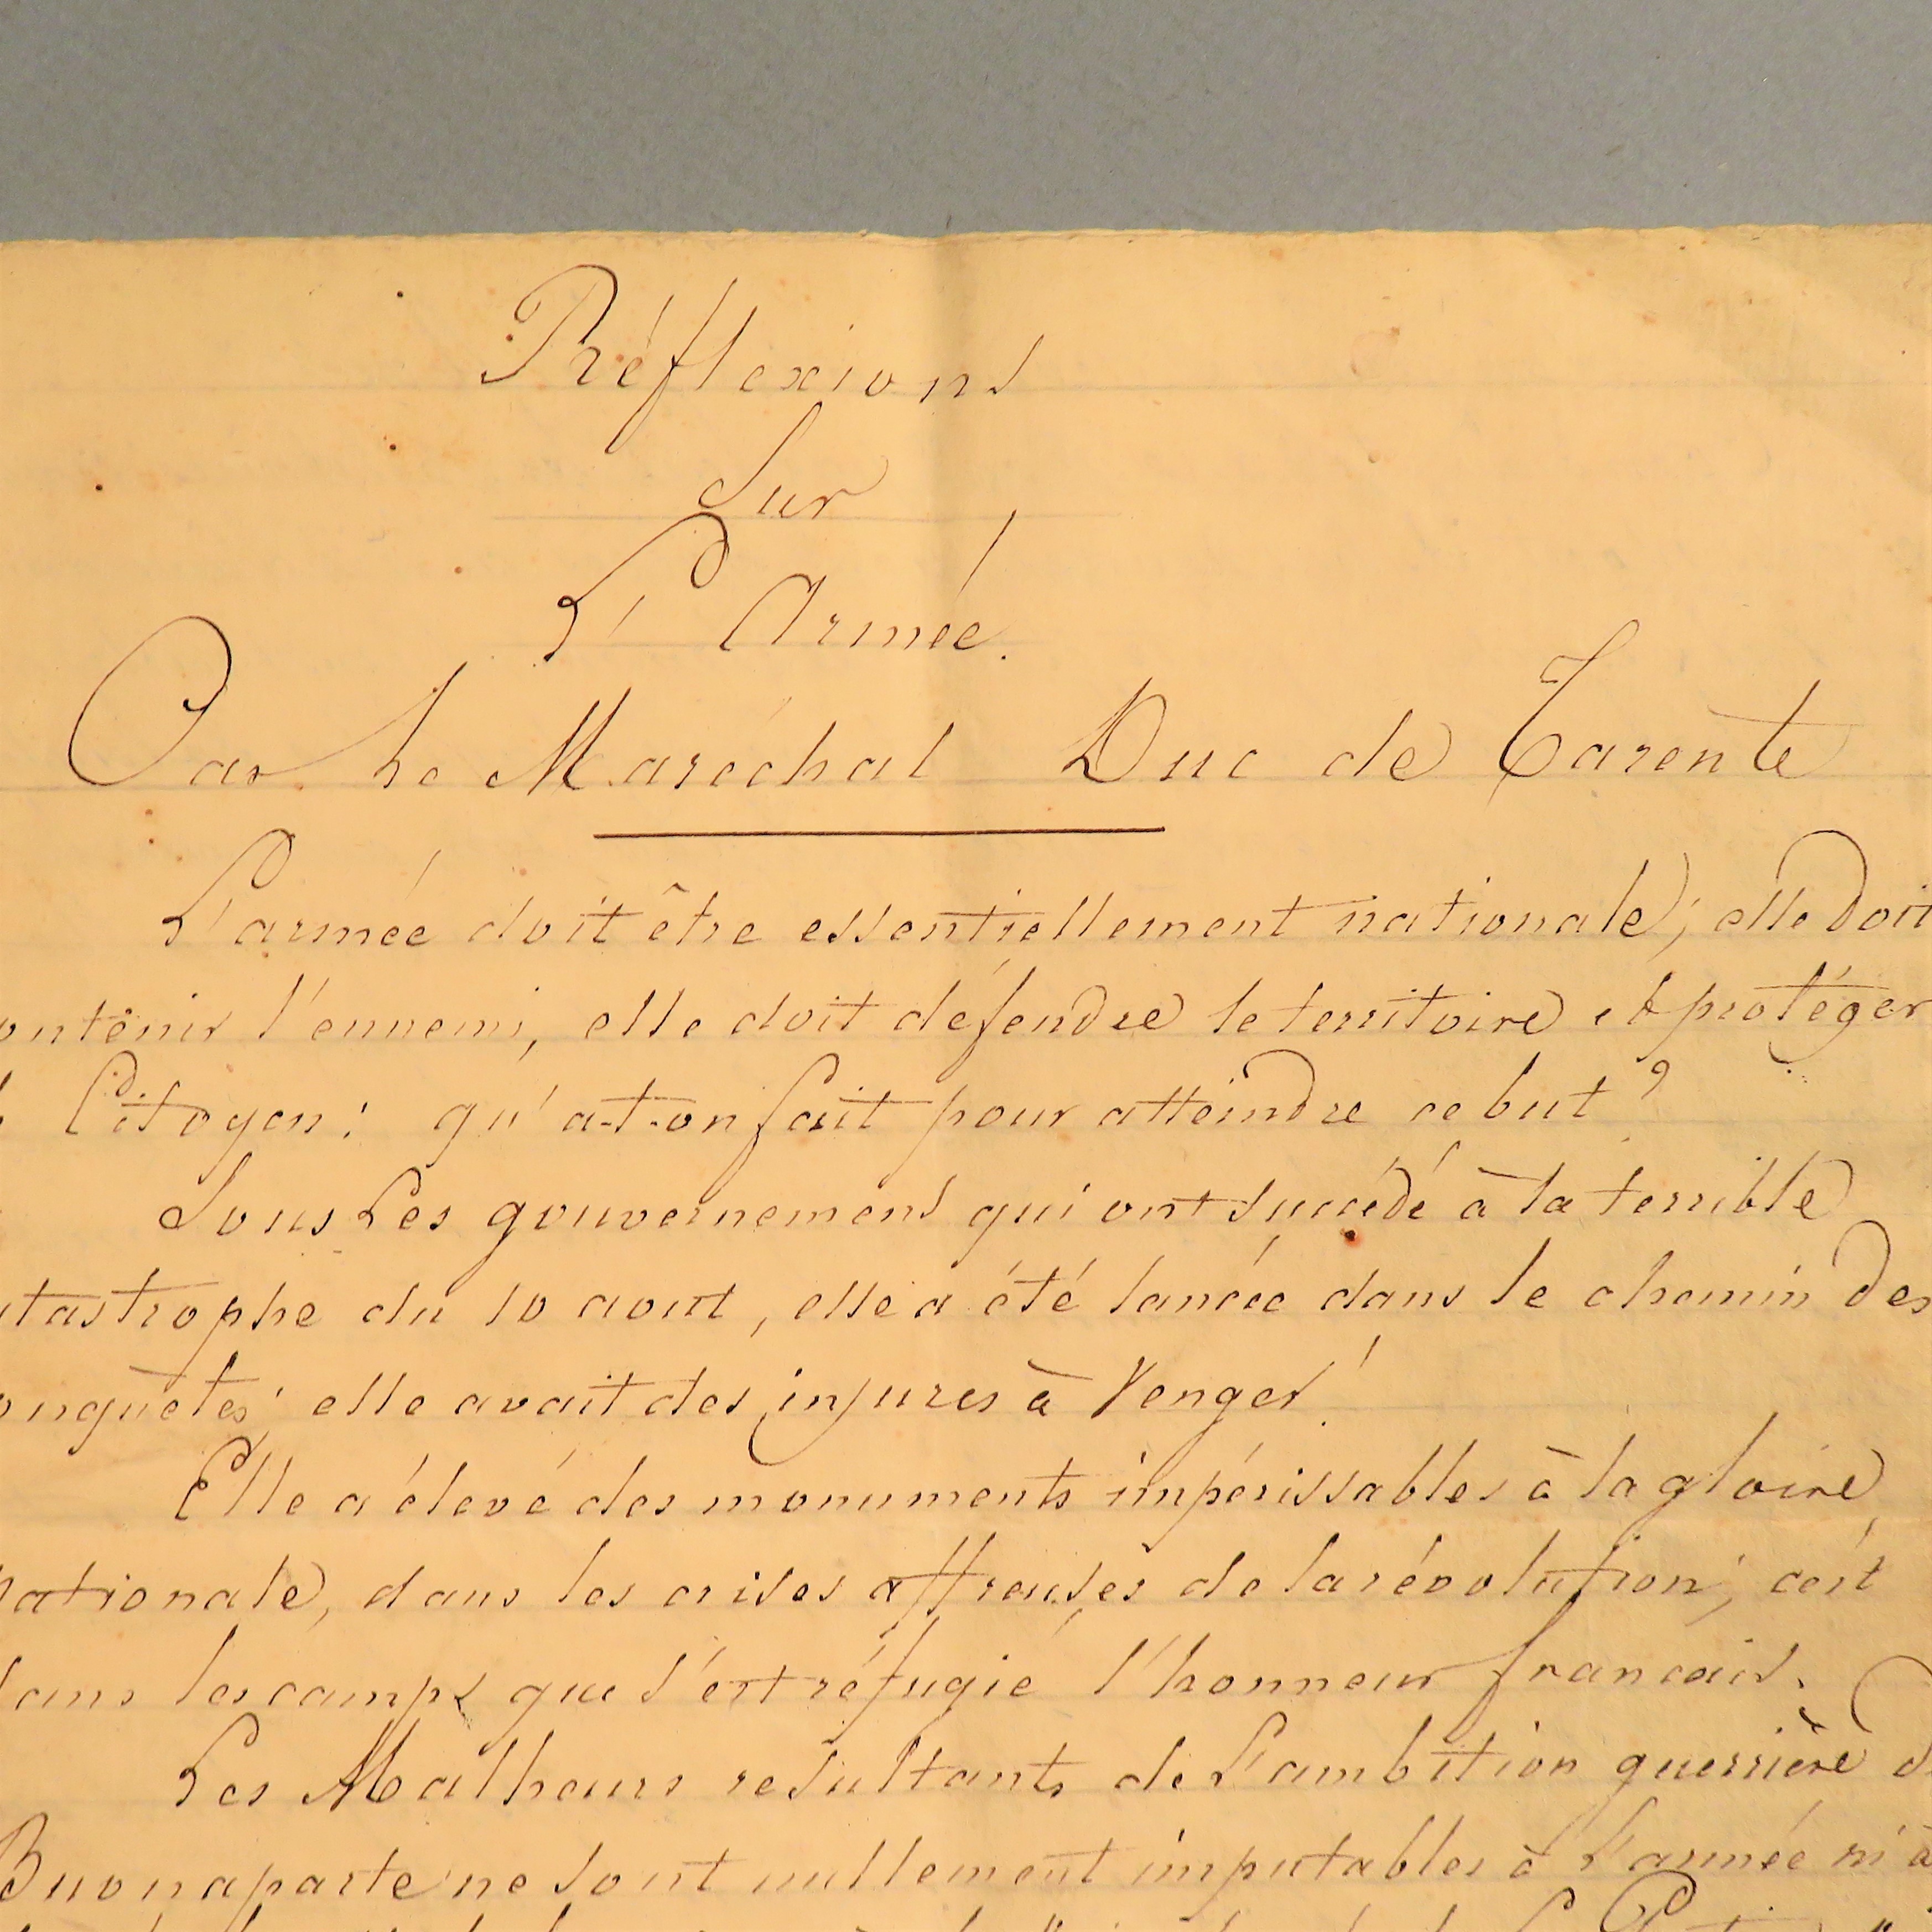 Réflexions
Sur
L'Armée.
Par Le Maréchal Duc de Tarente
L'armée doit être essentiellement nationale; elle doit
ontenir l'ennemi, elle doit défendre le territoire et protéger
Citoyen: qu'a-t-on fait pour atteindre ce but?
Sous Les gouvernemens qui ont succédé à la terrible
tastrophe du 10 aout, elle a été lancée dans le chemin des
onquètes; elle avait des injures à Venger!
Elle a élevé des monuments impérissables à la gloire
nationale, dans les crises affreuses de la révolution; c'est
dans les camps que s'est réfugié l'honneur francais.
Les Malheurs resultants de L'ambition guerrière d
Buonaparte ne sont nullement imputables à L'armée ni à